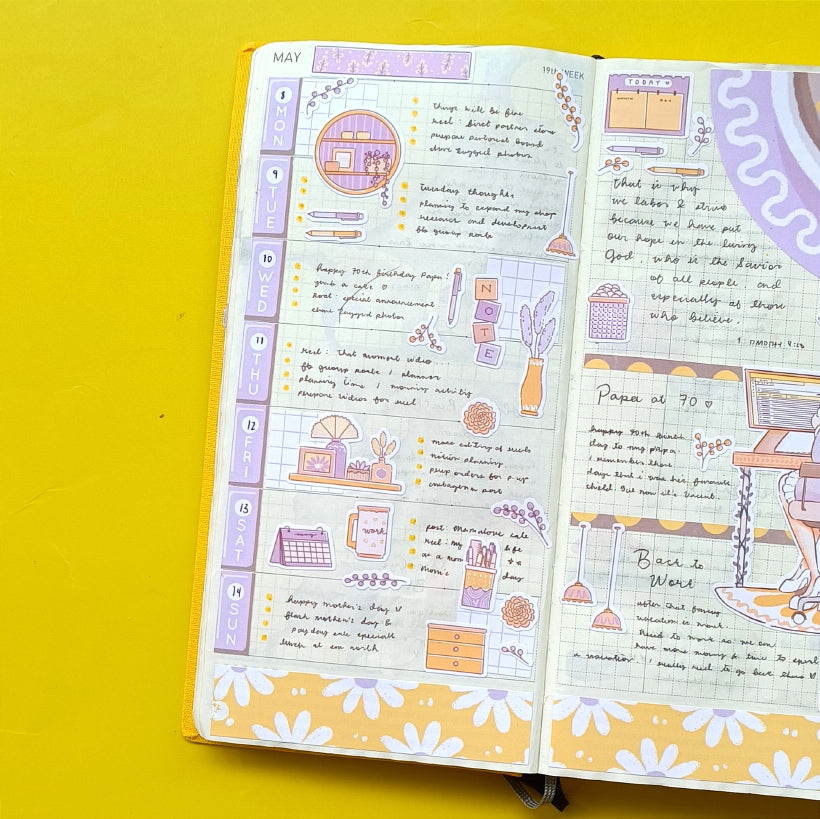 MAY
19th WEEK
8 MON
things will be fine
reel: first partner store
prepare pinterest board
9 TUE
Tuesday thoughts
planning to expand my shop
research and development
fb group posts
10 WED
happy 70th birthday Papa!
grab a cake ♡
post: special announcement
photos
NOTE
11 THU
reel: that moment video...
fb group posts / planner
planning time / morning activity
prepare videos for reel
12 FRI
more editing of reels
notion planning
prep orders for p-up
instagram post
13 SAT
work
post: Mamalove sale
reel: my life
as a mom
Mom's day
14 SUN
happy mother's day ♡
flash mother's day &
payday sale specials
lunch at sm north
TODAY
that is why
we labor & strive
because we have put
our hope in the living
God, who is the Savior
of all people and
especially of those
who believe.
1 TIMOTHY 4:10
Papa at 70 ♡
happy 70th birth
day to my Papa
I remember those
days that I was his favorite
child.
Back to
Work
after that
vacation is work.
Need to work so we can
have more money & time to spend
a vacation. I really need to go back there ♡